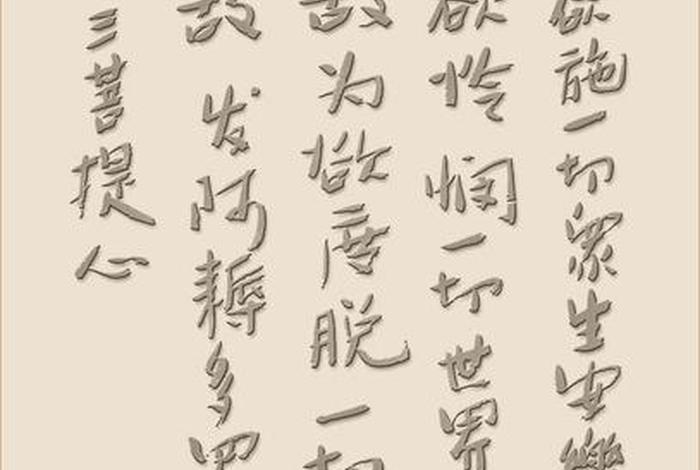 欲施一切眾生安樂
欲怜悯一切世界
故为欲度脱一切
故发阿耨多罗
三菩提心